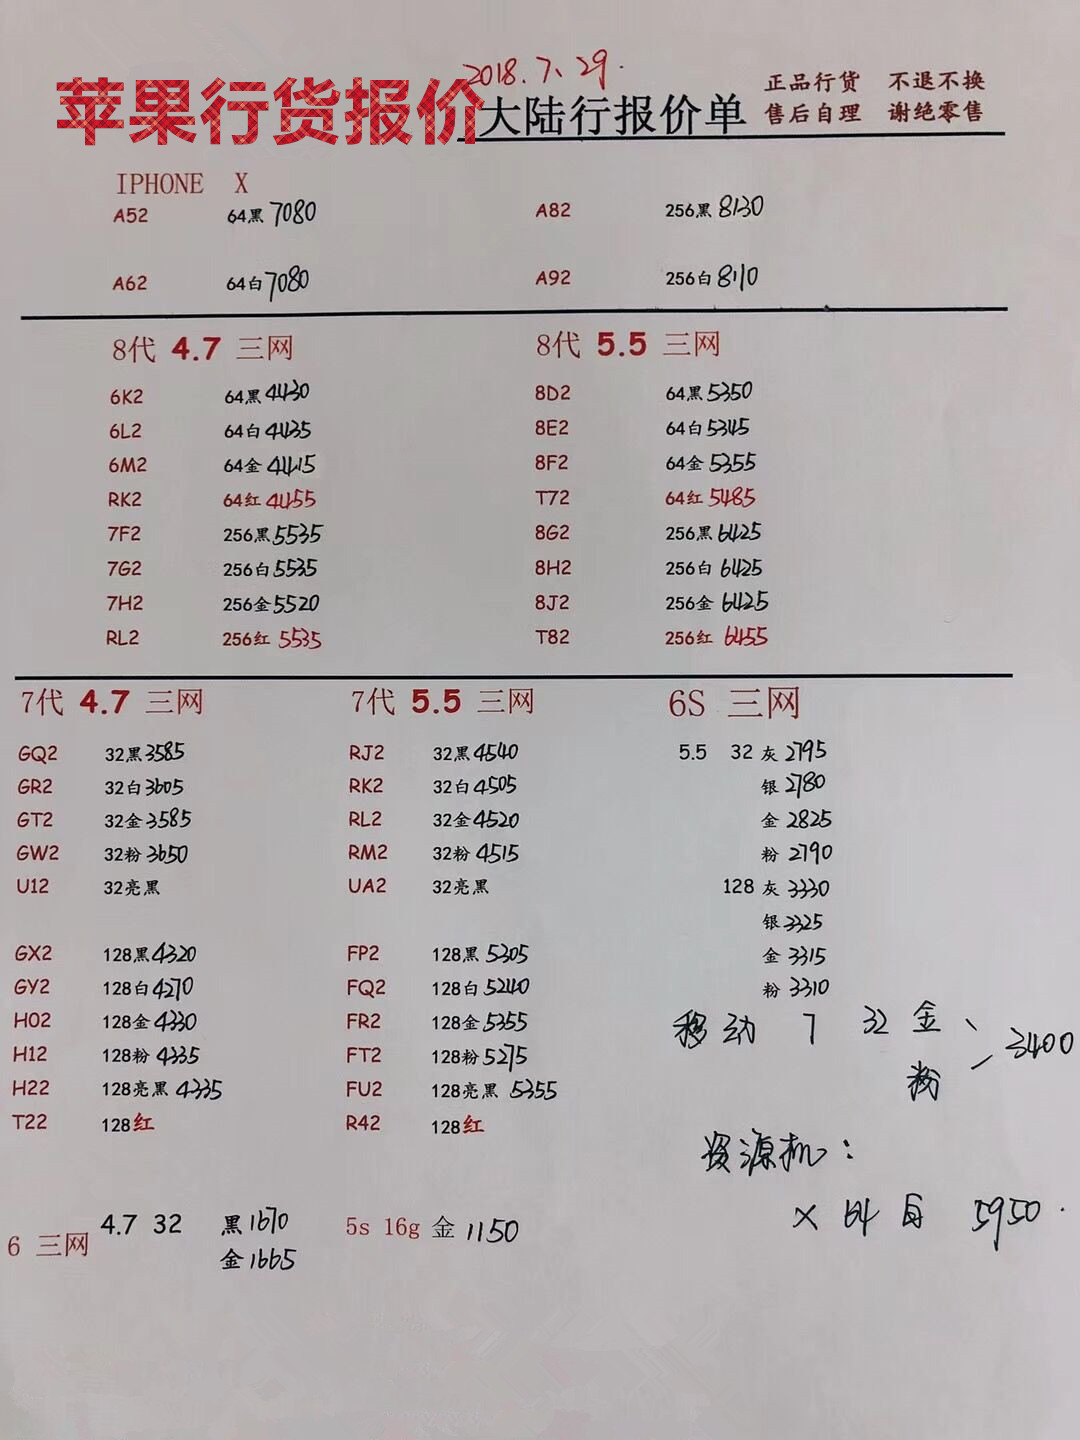 2018.7.29.
苹果行货报价
大陆行报价单
正品行货 不退不换
售后自理 谢绝零售
IPHONE X
A52 64黑 7080 A82 256黑 8130
A62 64白 7080 A92 256白 8110
8代 4.7 三网 8代 5.5 三网
6K2 64黑 4430 8D2 64黑 5350
6L2 64白 4435 8E2 64白 5345
6M2 64金 4415 8F2 64金 5355
RK2 64红 4455 T72 64红 5485
7F2 256黑 5535 8G2 256黑 6425
7G2 256白 5535 8H2 256白 6425
7H2 256金 5520 8J2 256金 6425
RL2 256红 5535 T82 256红 6455
7代 4.7 三网 7代 5.5 三网 6S 三网
GQ2 32黑 3585 RJ2 32黑 4540 5.5 32 灰 2795
GR2 32白 3605 RK2 32白 4505 银 2780
GT2 32金 3585 RL2 32金 4520 金 2825
GW2 32粉 3650 RM2 32粉 4515 粉 2790
U12 32亮黑 UA2 32亮黑 128 灰 3330
银 3325
GX2 128黑 4320 FP2 128黑 5305 金 3315
GY2 128白 4270 FQ2 128白 5240 粉 3310
H02 128金 4330 FR2 128金 5355
H12 128粉 4335 FT2 128粉 5275
H22 128亮黑 4335 FU2 128亮黑 5355
T22 128红 R42 128红
移动 7 32 金、
粉 3400
资源机:
X 64 白 5950.
6 三网 4.7 32 黑 1670 5s 16g 金 1150
金 1665